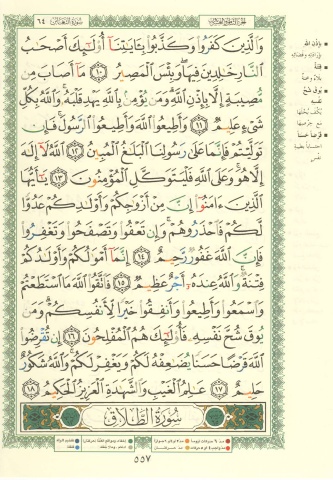 سُورَةُ التَّغَابُنِ ٦٤
وَالَّذِينَ كَفَرُوا وَكَذَّبُوا بِآيَاتِنَا أُولَٰئِكَ أَصْحَابُ
النَّارِ خَالِدِينَ فِيهَا وَبِئْسَ الْمَصِيرُ ١٠ مَا أَصَابَ مِن
مُّصِيبَةٍ إِلَّا بِإِذْنِ اللَّهِ وَمَن يُؤْمِن بِاللَّهِ يَهْدِ قَلْبَهُ وَاللَّهُ بِكُلِّ
شَيْءٍ عَلِيمٌ ١١ وَأَطِيعُوا اللَّهَ وَأَطِيعُوا الرَّسُولَ فَإِن
تَوَلَّيْتُمْ فَإِنَّمَا عَلَىٰ رَسُولِنَا الْبَلَاغُ الْمُبِينُ ١٢ اللَّهُ لَا إِلَٰهَ
إِلَّا هُوَ وَعَلَى اللَّهِ فَلْيَتَوَكَّلِ الْمُؤْمِنُونَ ١٣ يَا أَيُّهَا
الَّذِينَ آمَنُوا إِنَّ مِنْ أَزْوَاجِكُمْ وَأَوْلَادِكُمْ عَدُوًّا
لَّكُمْ فَاحْذَرُوهُمْ وَإِن تَعْفُوا وَتَصْفَحُوا وَتَغْفِرُوا
فَإِنَّ اللَّهَ غَفُورٌ رَّحِيمٌ ١٤ إِنَّمَا أَمْوَالُكُمْ وَأَوْلَادُكُمْ
فِتْنَةٌ وَاللَّهُ عِندَهُ أَجْرٌ عَظِيمٌ ١٥ فَاتَّقُوا اللَّهَ مَا اسْتَطَعْتُمْ
وَاسْمَعُوا وَأَطِيعُوا وَأَنفِقُوا خَيْرًا لِّأَنفُسِكُمْ وَمَن
يُوقَ شُحَّ نَفْسِهِ فَأُولَٰئِكَ هُمُ الْمُفْلِحُونَ ١٦ إِن تُقْرِضُوا
اللَّهَ قَرْضًا حَسَنًا يُضَاعِفْهُ لَكُمْ وَيَغْفِرْ لَكُمْ وَاللَّهُ شَكُورٌ
حَلِيمٌ ١٧ عَالِمُ الْغَيْبِ وَالشَّهَادَةِ الْعَزِيزُ الْحَكِيمُ ١٨
سُورَةُ الطَّلَاقِ
٥٥٧
بِإِذْنِ اللَّهِ
فِتْنَةٌ
يُوقَ شُحَّ
نَفْسِهِ
قَرْضًا حَسَنًا